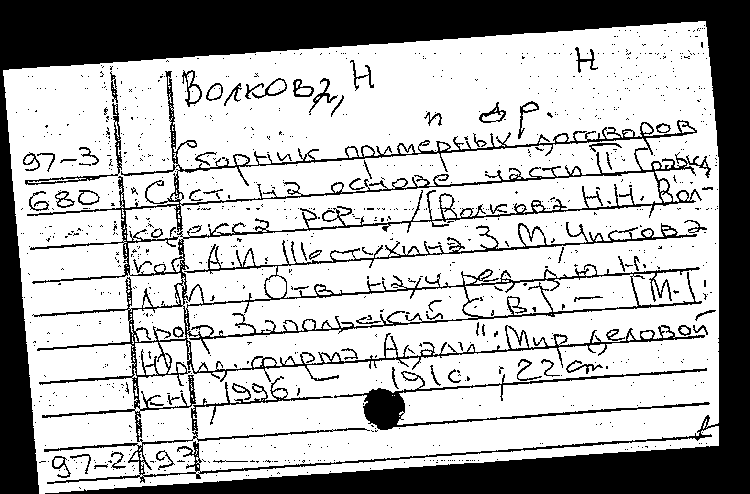 Н
Волкова, Н
и др.
97-3 Сборник примерных договоров
680 : Сост. на основе части II Гражд.
кодекса РФ... /[Волкова Н.Н., Вол-
ков А.И., Шестухина З.М., Чистова
Л.М.; Отв. науч. ред. д.ю.н.,
проф. Запольский С.В.]. — [М.]:
Юрид. фирма „Адали": Мир деловой
кн., 1996. — 191с. ; 22 см.
97-2493